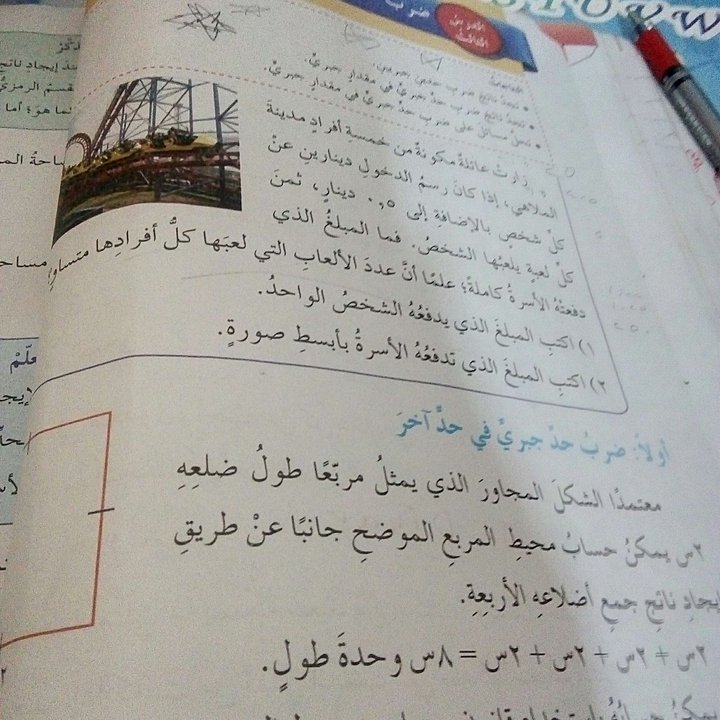 الدرس
الثالث
ضرب
• تجدُ ناتجَ ضربِ حدينِ جبريينِ.
• تجدُ ناتجَ ضربِ حدٍّ جبريٍّ في مقدارٍ جبريٍّ.
• تحلُّ مسائلَ على ضربِ حدٍّ جبريٍّ في مقدارٍ جبريٍّ.
زارتْ عائلةٌ مكونةٌ من خمسةِ أفرادٍ مدينةَ
الملاهي، إذا كانَ رسمُ الدخولِ دينارينِ عنْ
كلِّ شخصٍ بالإضافةِ إلى ٠,٥ دينارٍ، ثمنَ
كلِّ لعبةٍ يلعبُها الشخصُ. فما المبلغُ الذي
دفعتْهُ الأسرةُ كاملةً؛ علمًا أنَّ عددَ الألعابِ التي لعبَها كلُّ أفرادِها متساوٍ؟
١) اكتبِ المبلغَ الذي يدفعُهُ الشخصُ الواحدُ.
٢) اكتبِ المبلغَ الذي تدفعُهُ الأسرةُ بأبسطِ صورةٍ.
أولاً: ضربُ حدٍّ جبريٍّ في حدٍّ آخرَ
معتمدًا الشكلَ المجاورَ الذي يمثلُ مربّعًا طولُ ضلعِهِ
٢س يمكنُ حسابُ محيطِ المربعِ الموضحِ جانبًا عنْ طريقِ
إيجادِ ناتجِ جمعِ أضلاعِهِ الأربعةِ.
٢س + ٢س + ٢س + ٢س = ٨س وحدةَ طولٍ.